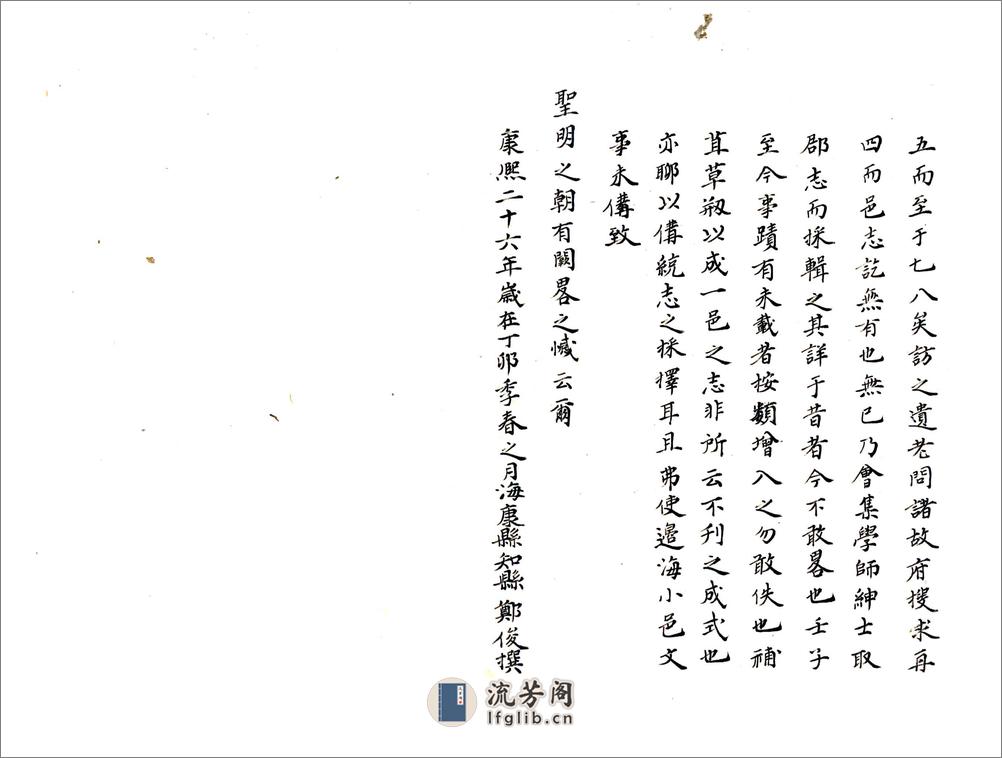 五而至于七八矣訪之遺老問諸故府搜求再
四而邑志訖無有也無已乃會集學師紳士取
郡志而採輯之其詳于昔者今不敢畧也壬子
至今事蹟有未載者按類增入之勿敢佚也補
葺草剏以成一邑之志非所云不刋之成式也
亦聊以備統志之採擇耳且弗使邉海小邑文
事未備致
聖明之朝有闕畧之憾云爾
康熈二十六年歲在丁卯季春之月海康縣知縣鄭俊撰
流芳阁
lfglib.cn